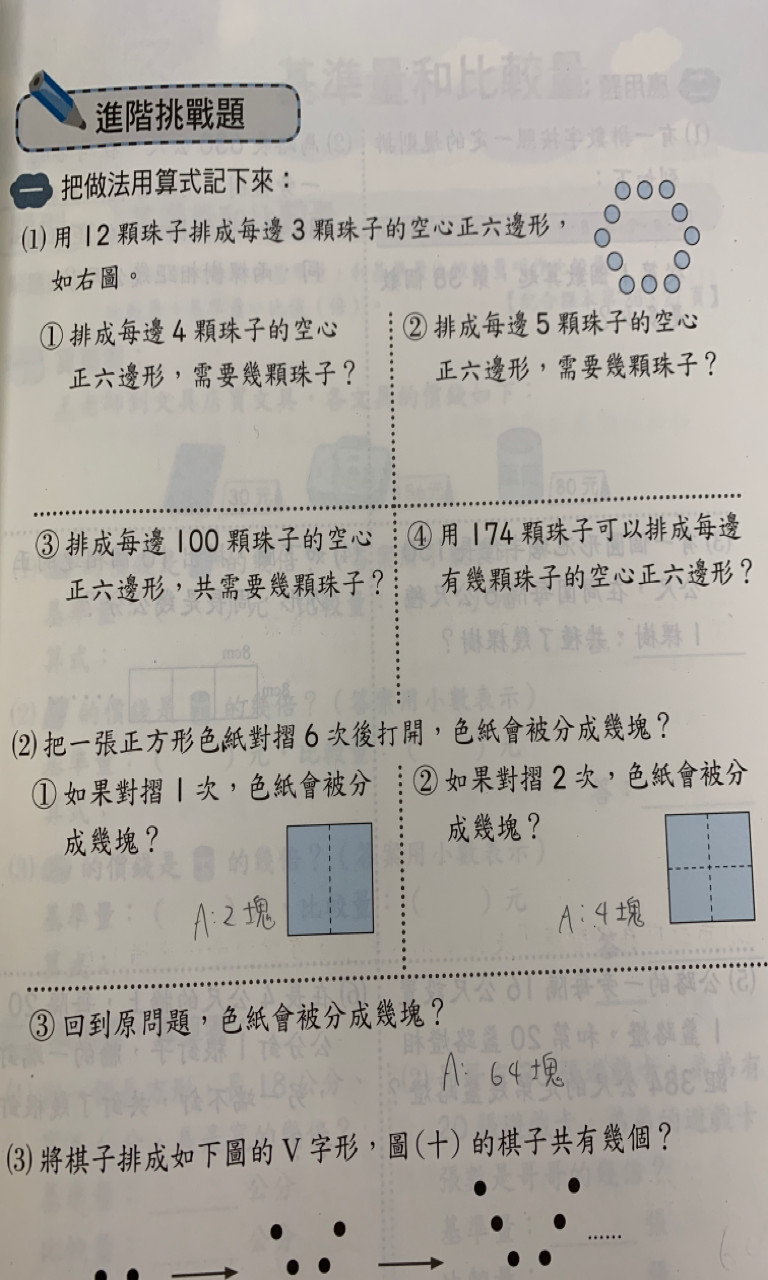 進階挑戰題
一 把做法用算式記下來：
⑴ 用 12 顆珠子排成每邊 3 顆珠子的空心正六邊形，
如右圖。
① 排成每邊 4 顆珠子的空心
正六邊形，需要幾顆珠子？
② 排成每邊 5 顆珠子的空心
正六邊形，需要幾顆珠子？
③ 排成每邊 100 顆珠子的空心
正六邊形，共需要幾顆珠子？
④ 用 174 顆珠子可以排成每邊
有幾顆珠子的空心正六邊形？
⑵ 把一張正方形色紙對摺 6 次後打開，色紙會被分成幾塊？
① 如果對摺 1 次，色紙會被分
成幾塊？
A：2 塊
② 如果對摺 2 次，色紙會被分
成幾塊？
A：4 塊
③ 回到原問題，色紙會被分成幾塊？
A：64 塊
⑶ 將棋子排成如下圖的 V 字形，圖(十)的棋子共有幾個？
……